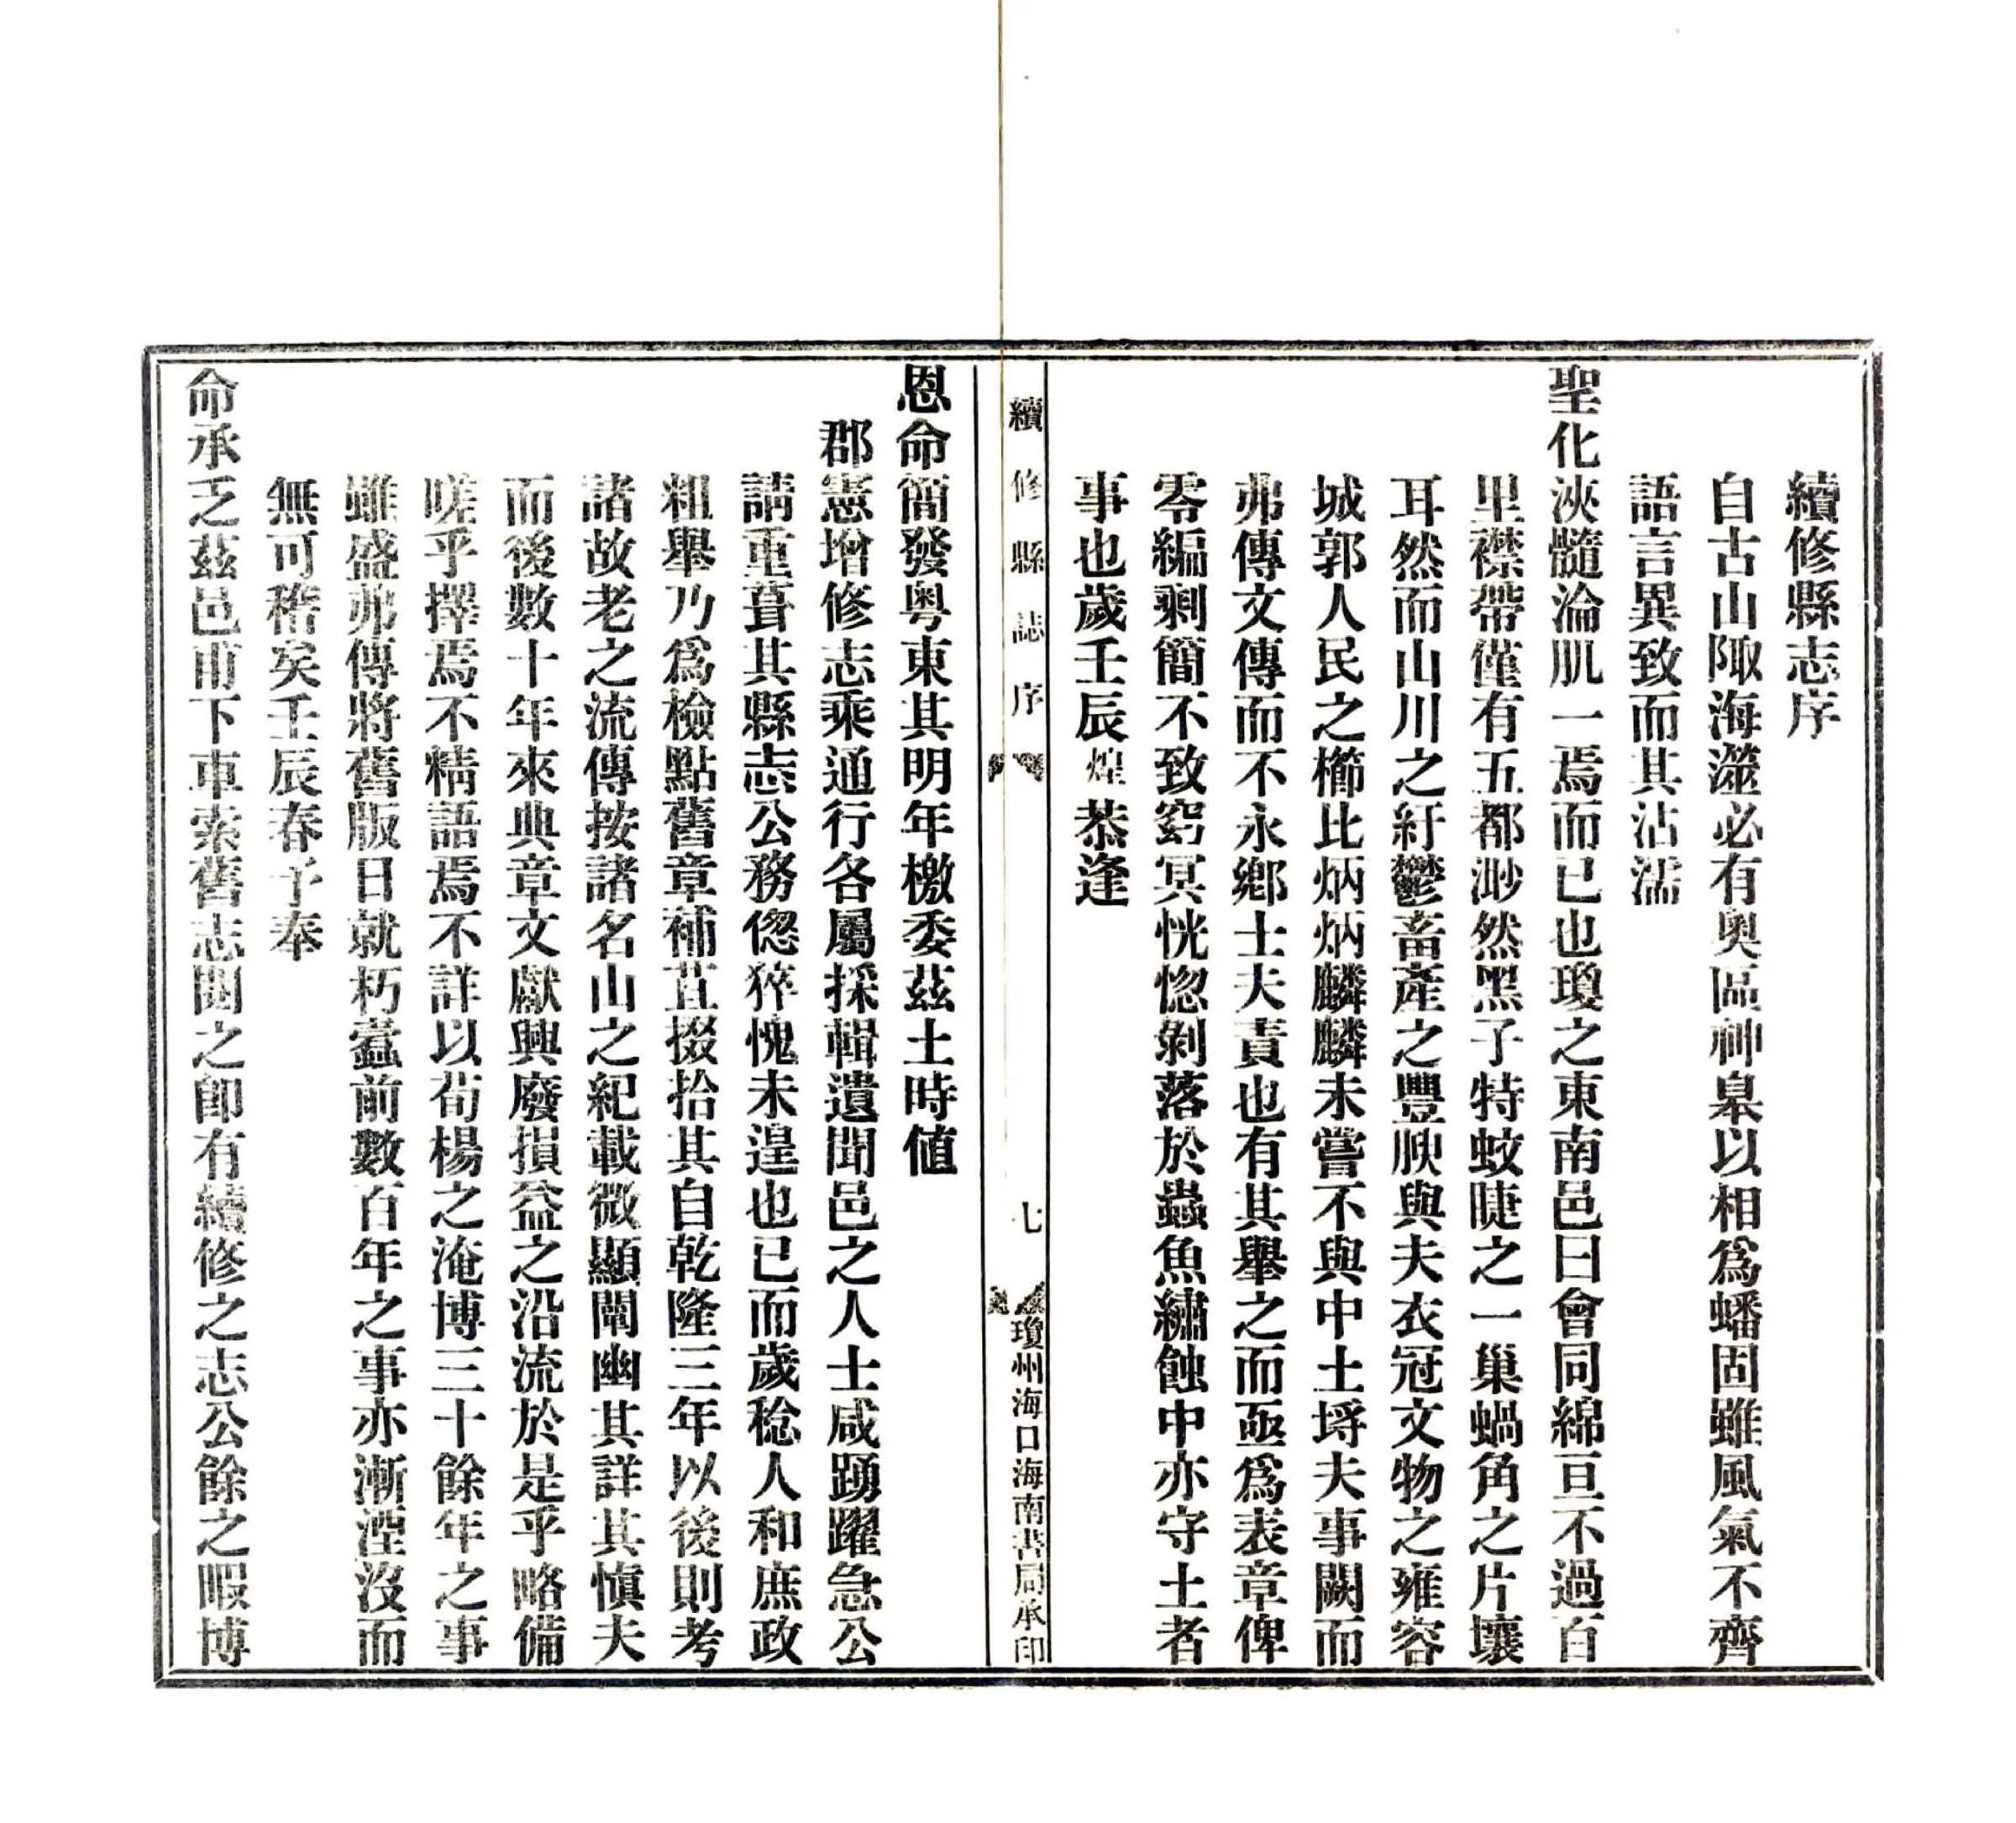 續修縣志序
自古山陬海澨必有奧區神皋以相爲蟠固雖風氣不齊
語言異致而其沾濡
聖化浹髓淪肌一焉而已也瓊之東南邑曰會同綿亘不過百
里襟帶僅有五都渺然黑子特蚊睫之一巢蝸角之片壤
耳然而山川之紆鬱畜產之豐腴與夫衣冠文物之雍容
城郭人民之櫛比炳炳麟麟未嘗不與中土埒夫事闕而
弗傳文傳而不永鄉士夫責也有其舉之而亟爲表章俾
零編剩簡不致窈冥恍惚剝落於蟲魚繡蝕中亦守土者
事也歲壬辰煌恭逢
續修縣誌序
七
瓊州海口海南書局承印
恩命簡發粤東其明年檄委茲土時值
郡憲增修志乘通行各屬採輯遺聞邑之人士咸踴躍急公
請重葺其縣志公務傯猝愧未遑也已而歲稔人和庶政
粗舉乃爲檢點舊章補苴掇拾其自乾隆三年以後則考
諸故老之流傳按諸名山之紀載微顯闡幽其詳其愼夫
而後數十年來典章文獻興廢損益之沿流於是乎略備
嗟乎擇焉不精語焉不詳以荀楊之淹博三十餘年之事
雖盛弗傳將舊版日就朽蠹前數百年之事亦漸湮沒而
無可稽矣壬辰春予奉
命承乏茲邑甫下車索舊志閱之卽有續修之志公餘之暇博